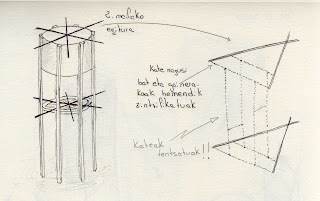 2. mailako
egitura
Kate nagusi
bat eta gainera-
koak hemendik
zintzilikatuak
Kateak
tentsatuak!!